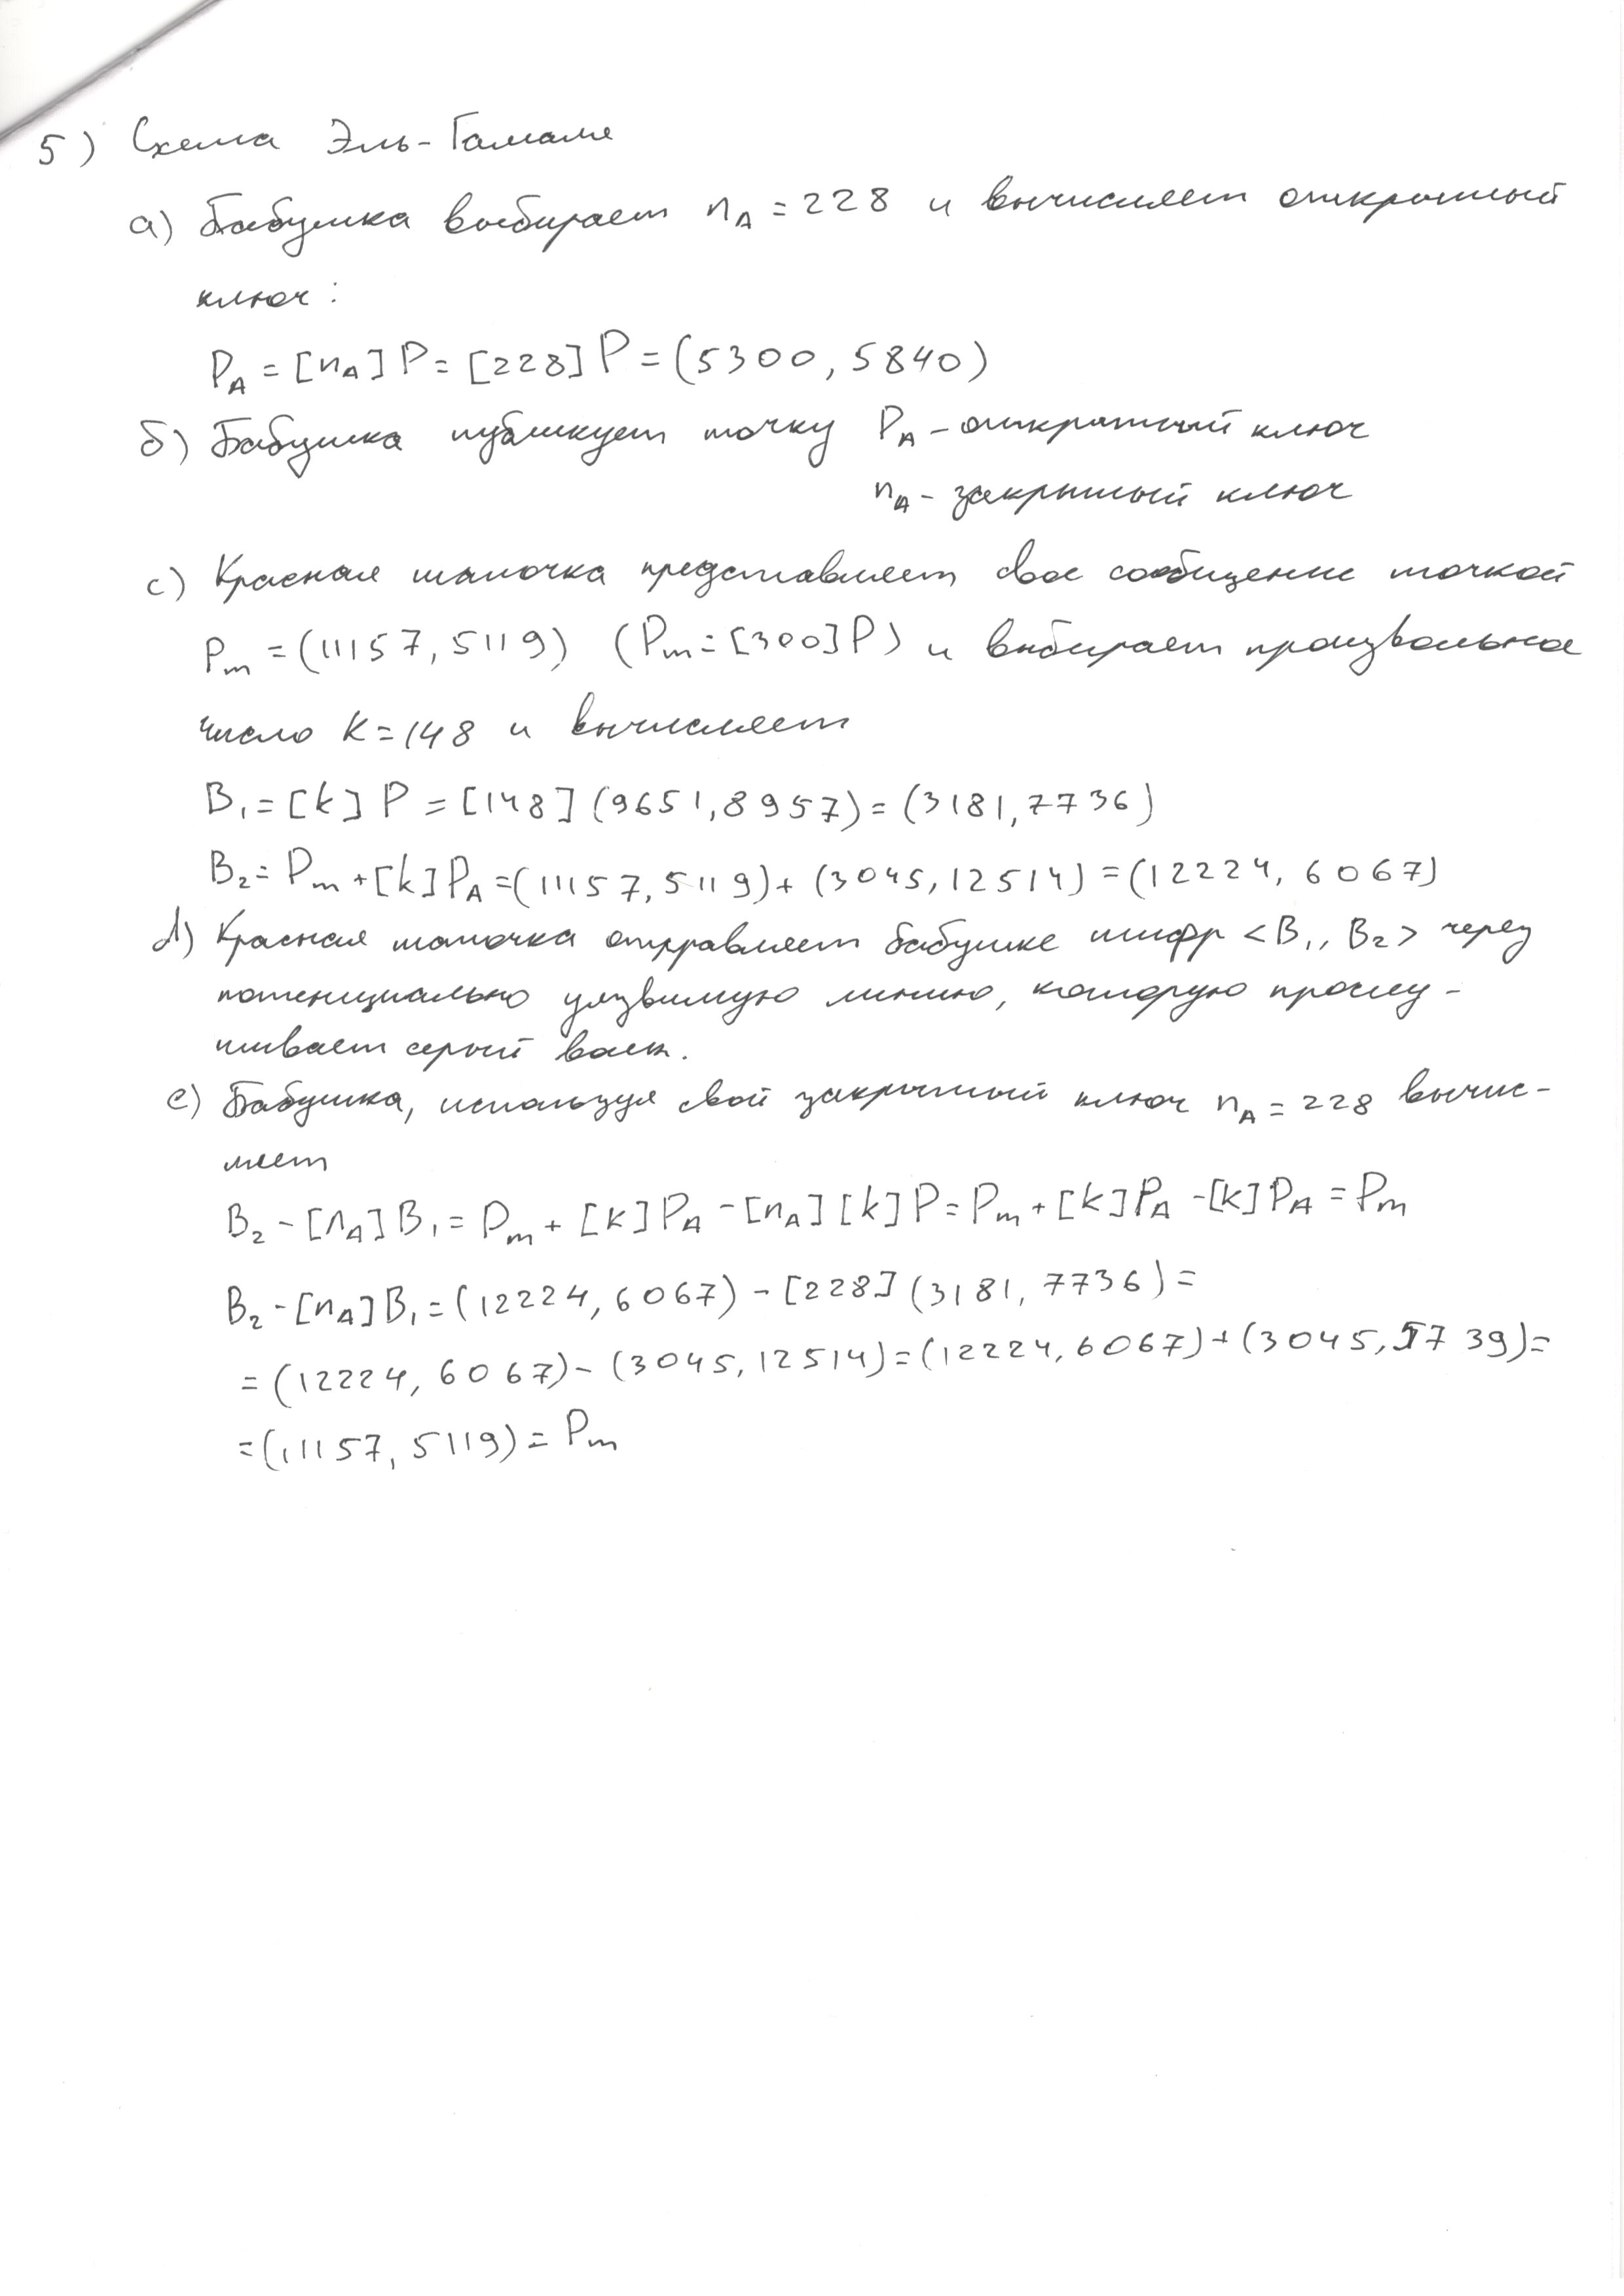 5) Схема Эль-Гамаля
а) Бабушка выбирает n_A = 228 и вычисляет открытый
ключ:
P_A = [n_A] P = [228] P = (5300, 5840)
б) Бабушка публикует точку P_A - открытый ключ
n_A - закрытый ключ
c) Красная шапочка представляет свое сообщение точкой
P_m = (11157, 5119) (P_m = [300]P) и выбирает произвольное
число k = 148 и вычисляет
B_1 = [k] P = [148] (9651, 8957) = (3181, 7736)
B_2 = P_m + [k] P_A = (11157, 5119) + (3045, 12514) = (12224, 6067)
d) Красная шапочка отправляет бабушке шифр <B_1, B_2> через
потенциально уязвимую линию, которую прослу-
шивает серый волк.
e) Бабушка, используя свой закрытый ключ n_A = 228 вычис-
ляет
B_2 - [n_A] B_1 = P_m + [k] P_A - [n_A] [k] P = P_m + [k] P_A - [k] P_A = P_m
B_2 - [n_A] B_1 = (12224, 6067) - [228] (3181, 7736) =
= (12224, 6067) - (3045, 12514) = (12224, 6067) + (3045, 5739) =
= (11157, 5119) = P_m